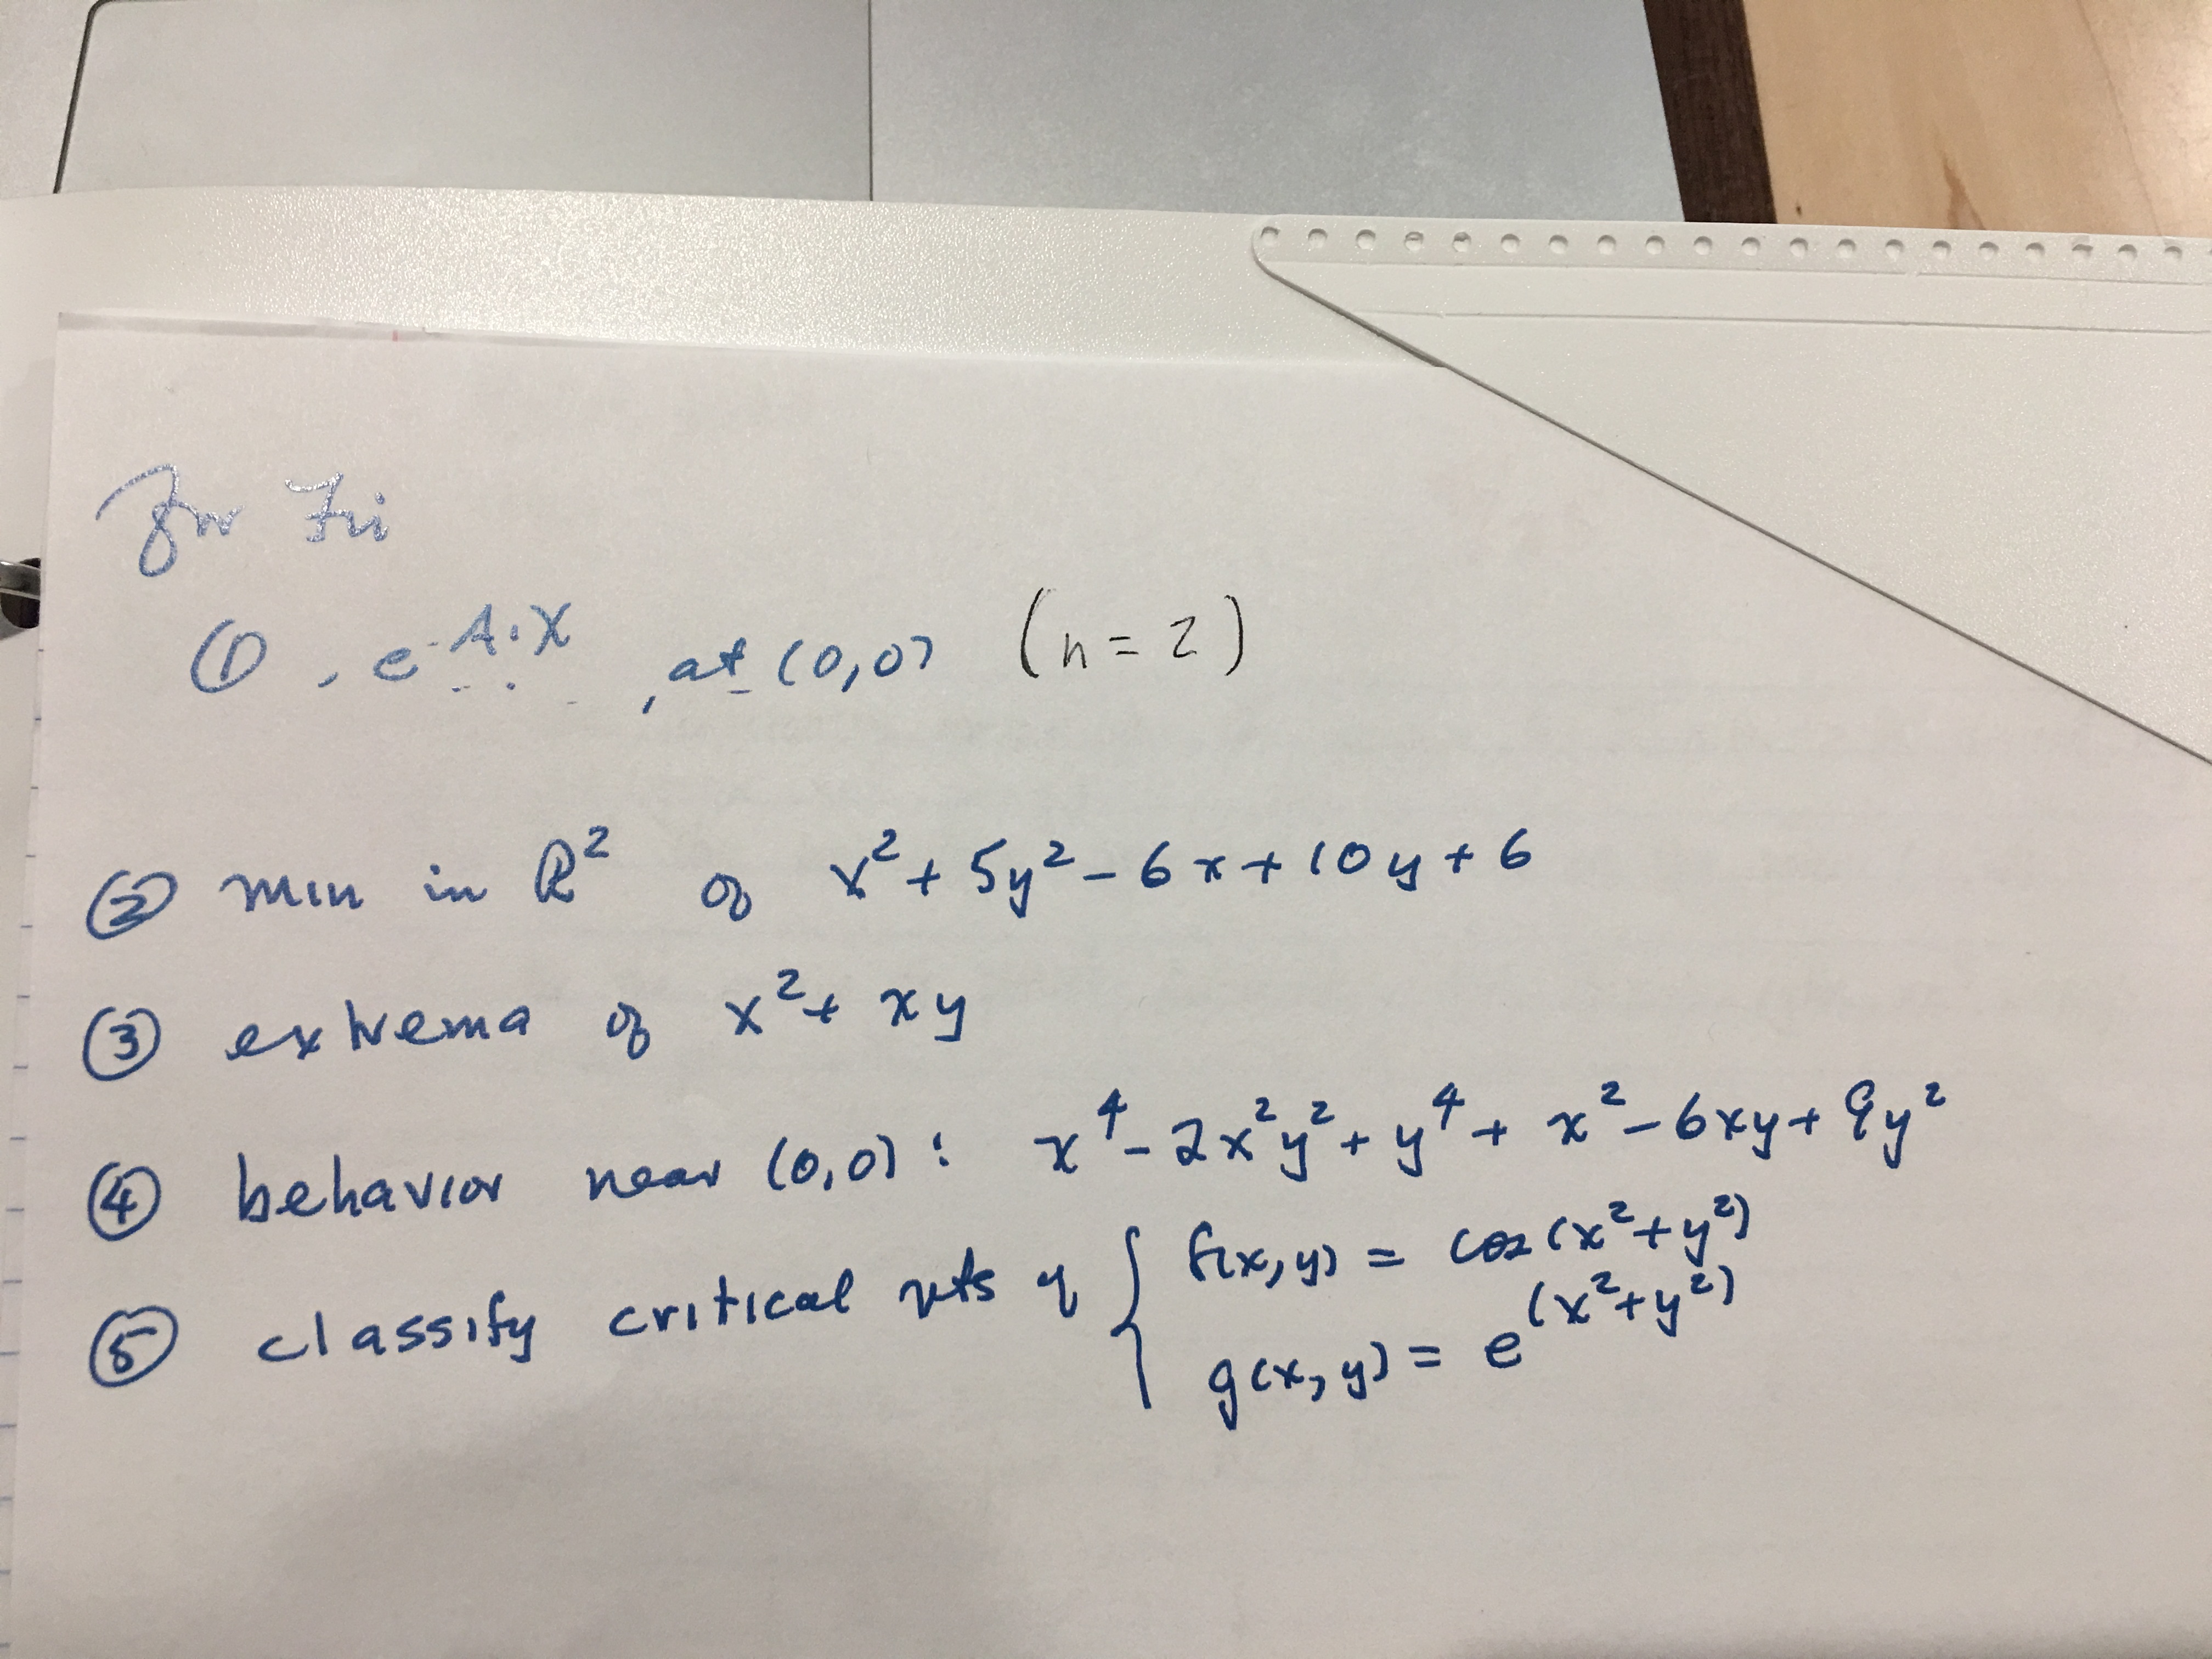 For Fri
① . e A·X , at (0,0) (n=2)
② min in R² of x² + 5y² - 6x + 10y + 6
③ extrema of x² + xy
④ behavior near (0,0) : x⁴ - 2x²y² + y⁴ + x² - 6xy + 9y²
⑤ classify critical pts of { f(x,y) = cos(x²+y²)
g(x,y) = e^(x²+y²)